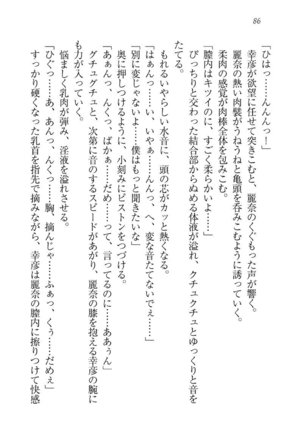 86
「ひはっ……んんんっー!」
幸彦が欲望に任せて突きこむと、麗奈のくぐもった声が響く。
麗奈の熱い肉襞がうねうねと亀頭を呑みこむように誘っていく。
柔肉の感触が肉棒全体を包みこむ。
「膣内はキツイのに、すごく柔らかいよ……」
ぴっちりと交わった結合部からぬめる体液が溢れ、クチュクチュとゆっくりと音を
たてる。
もれるいやらしい水音に、頭の芯がカッと熱くなる。
「はぁんっ……い、いやぁ……んんっ、へ、変な音たてないでぇ……」
「別に変じゃないよ……僕はもっと聞きたいな」
奥に押しつけるように、小刻みにピストンをつづける。
「あぁんっ、んくっ、ばかぁ……だめ……って、言ってるのに……ああぅん」
グチュグチュと、次第に音のするスピードがあがり、麗奈の膝を抱える幸彦の腕に
も力が入っていく。
悩ましく乳肉が弾み、淫液を溢れさせる。
「ひぐっ……あ、あんっ、んくっ……胸、摘んじゃ……ふぁっ、くぅ……だめぇ」
すっかり硬くなった乳首を指先で摘みながら、幸彦は麗奈の膣内に擦りつけて快感